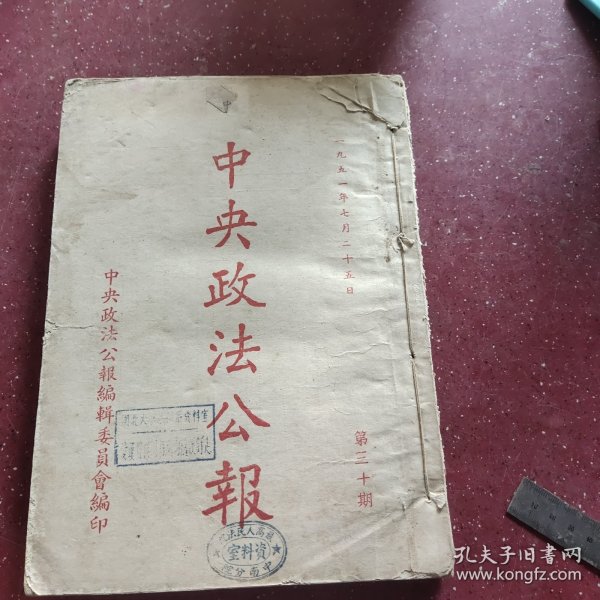 中
一九五一年七月二十五日
中央政法公報
第三十期
中央政法公報編輯委員會編印
最高人民法院
資料室
中南分院
孔夫子旧书网
www.kongfz.com